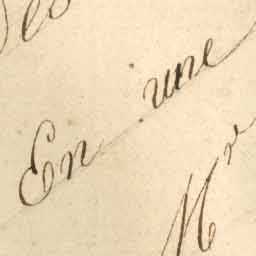 En une
Mre